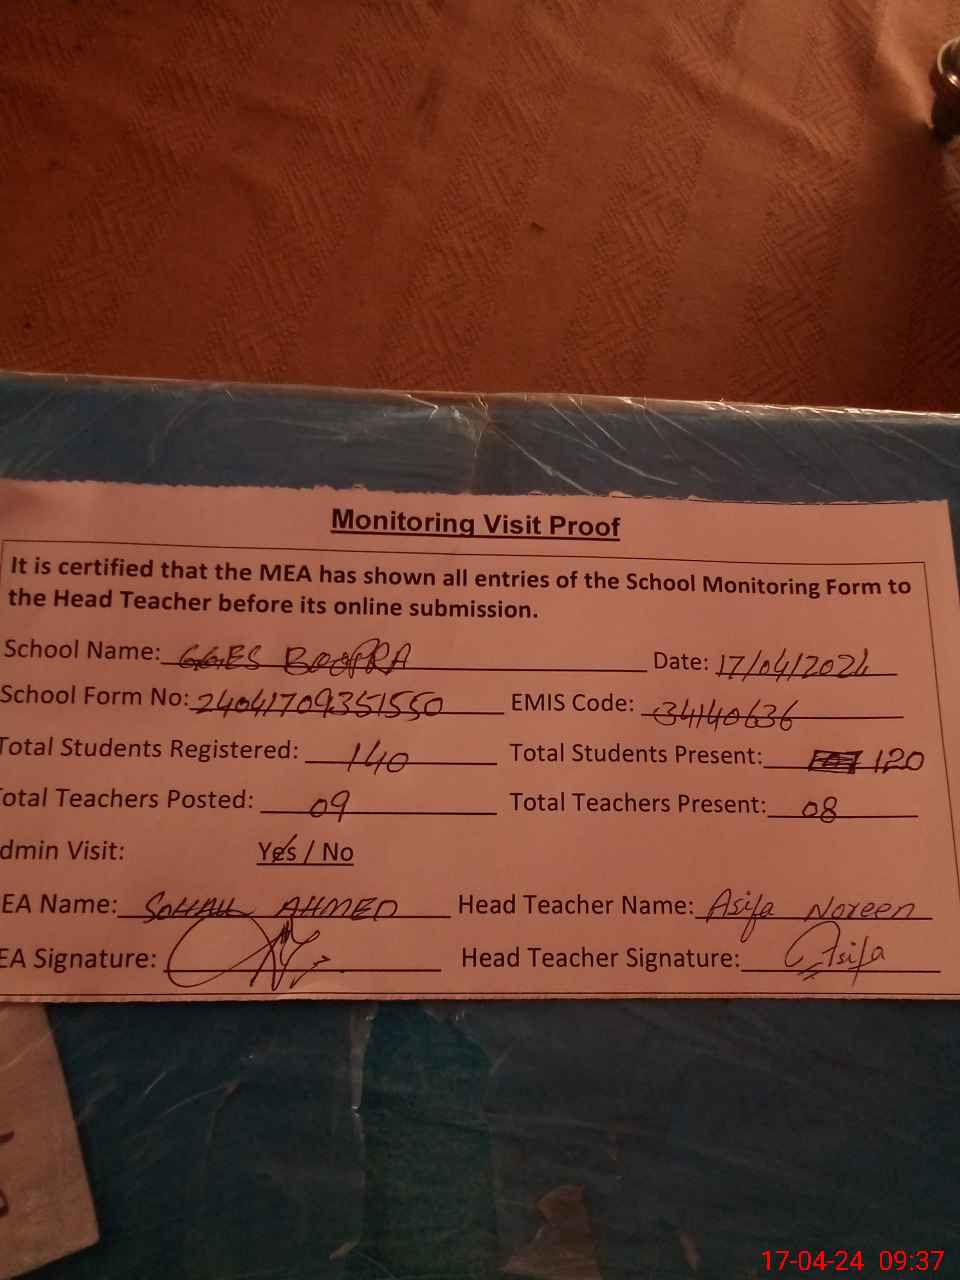 Monitoring Visit Proof
It is certified that the MEA has shown all entries of the School Monitoring Form to
the Head Teacher before its online submission.
School Name: GGES Date: 17/04/2024
School Form No: 24041709351550 EMIS Code: 34140636
Total Students Registered: 140 Total Students Present: 120
otal Teachers Posted: 09 Total Teachers Present: 08
dmin Visit: Yes / No
EA Name: SOHAIL AHMED Head Teacher Name: Asifa Noreen
EA Signature: Head Teacher Signature: Asifa
17-04-24 09:37